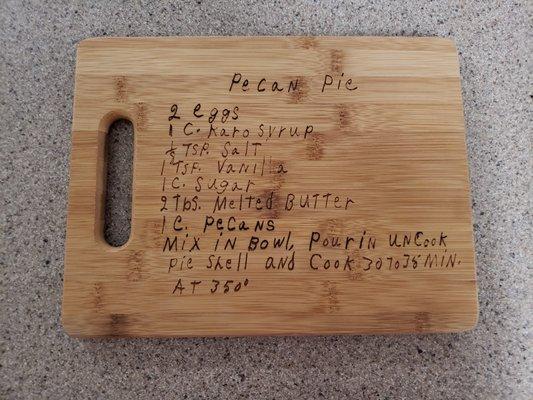 Pecan Pie
2 eggs
1 C. Karo Syrup
1/2 TSP. Salt
1 TSP. Vanilla
1 C. Sugar
2 Tbs. Melted Butter
1 C. Pecans
Mix in Bowl, Pour in uncook
pie shell and Cook 30 to 35 min.
AT 350°